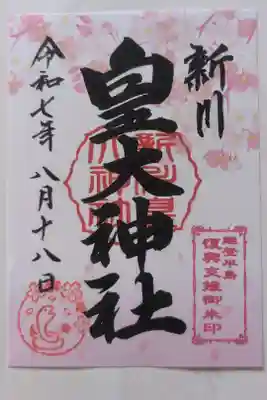 新川
皇大神社
新川皇
大神社
能登半島
復興支援御朱印
令和七年 八月十八日